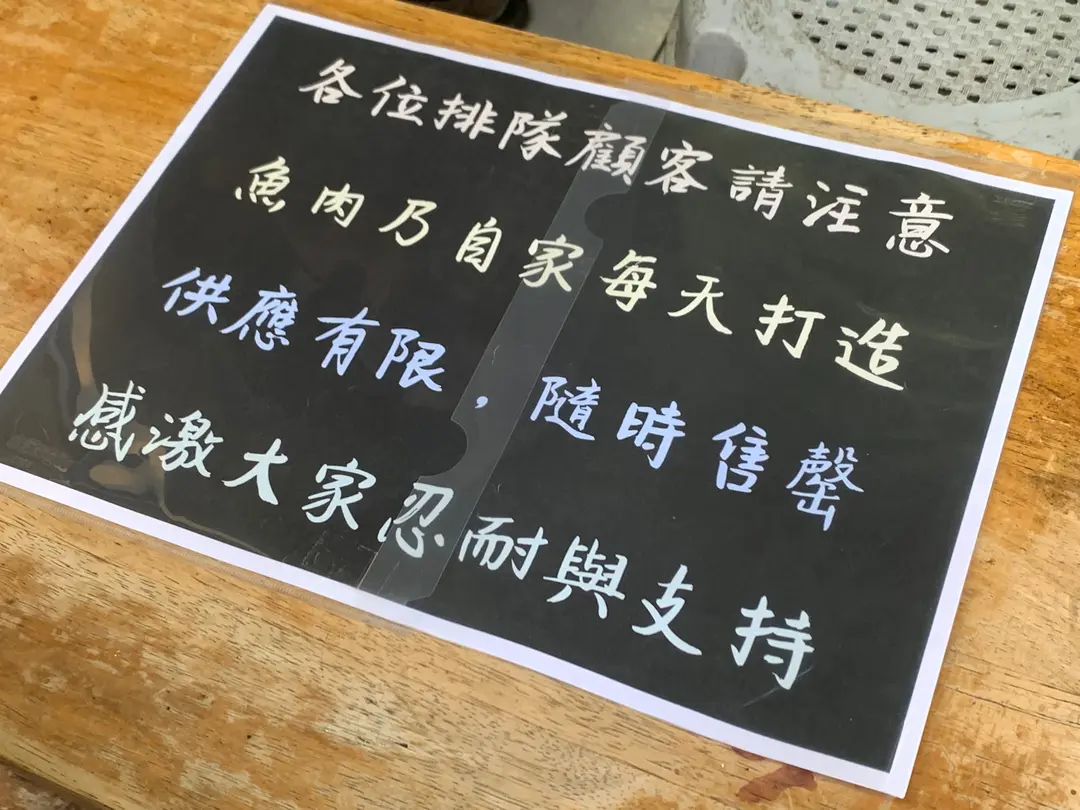 各位排隊顧客請注意
魚肉乃自家每天打造
供應有限，隨時售罄
感激大家忍耐與支持